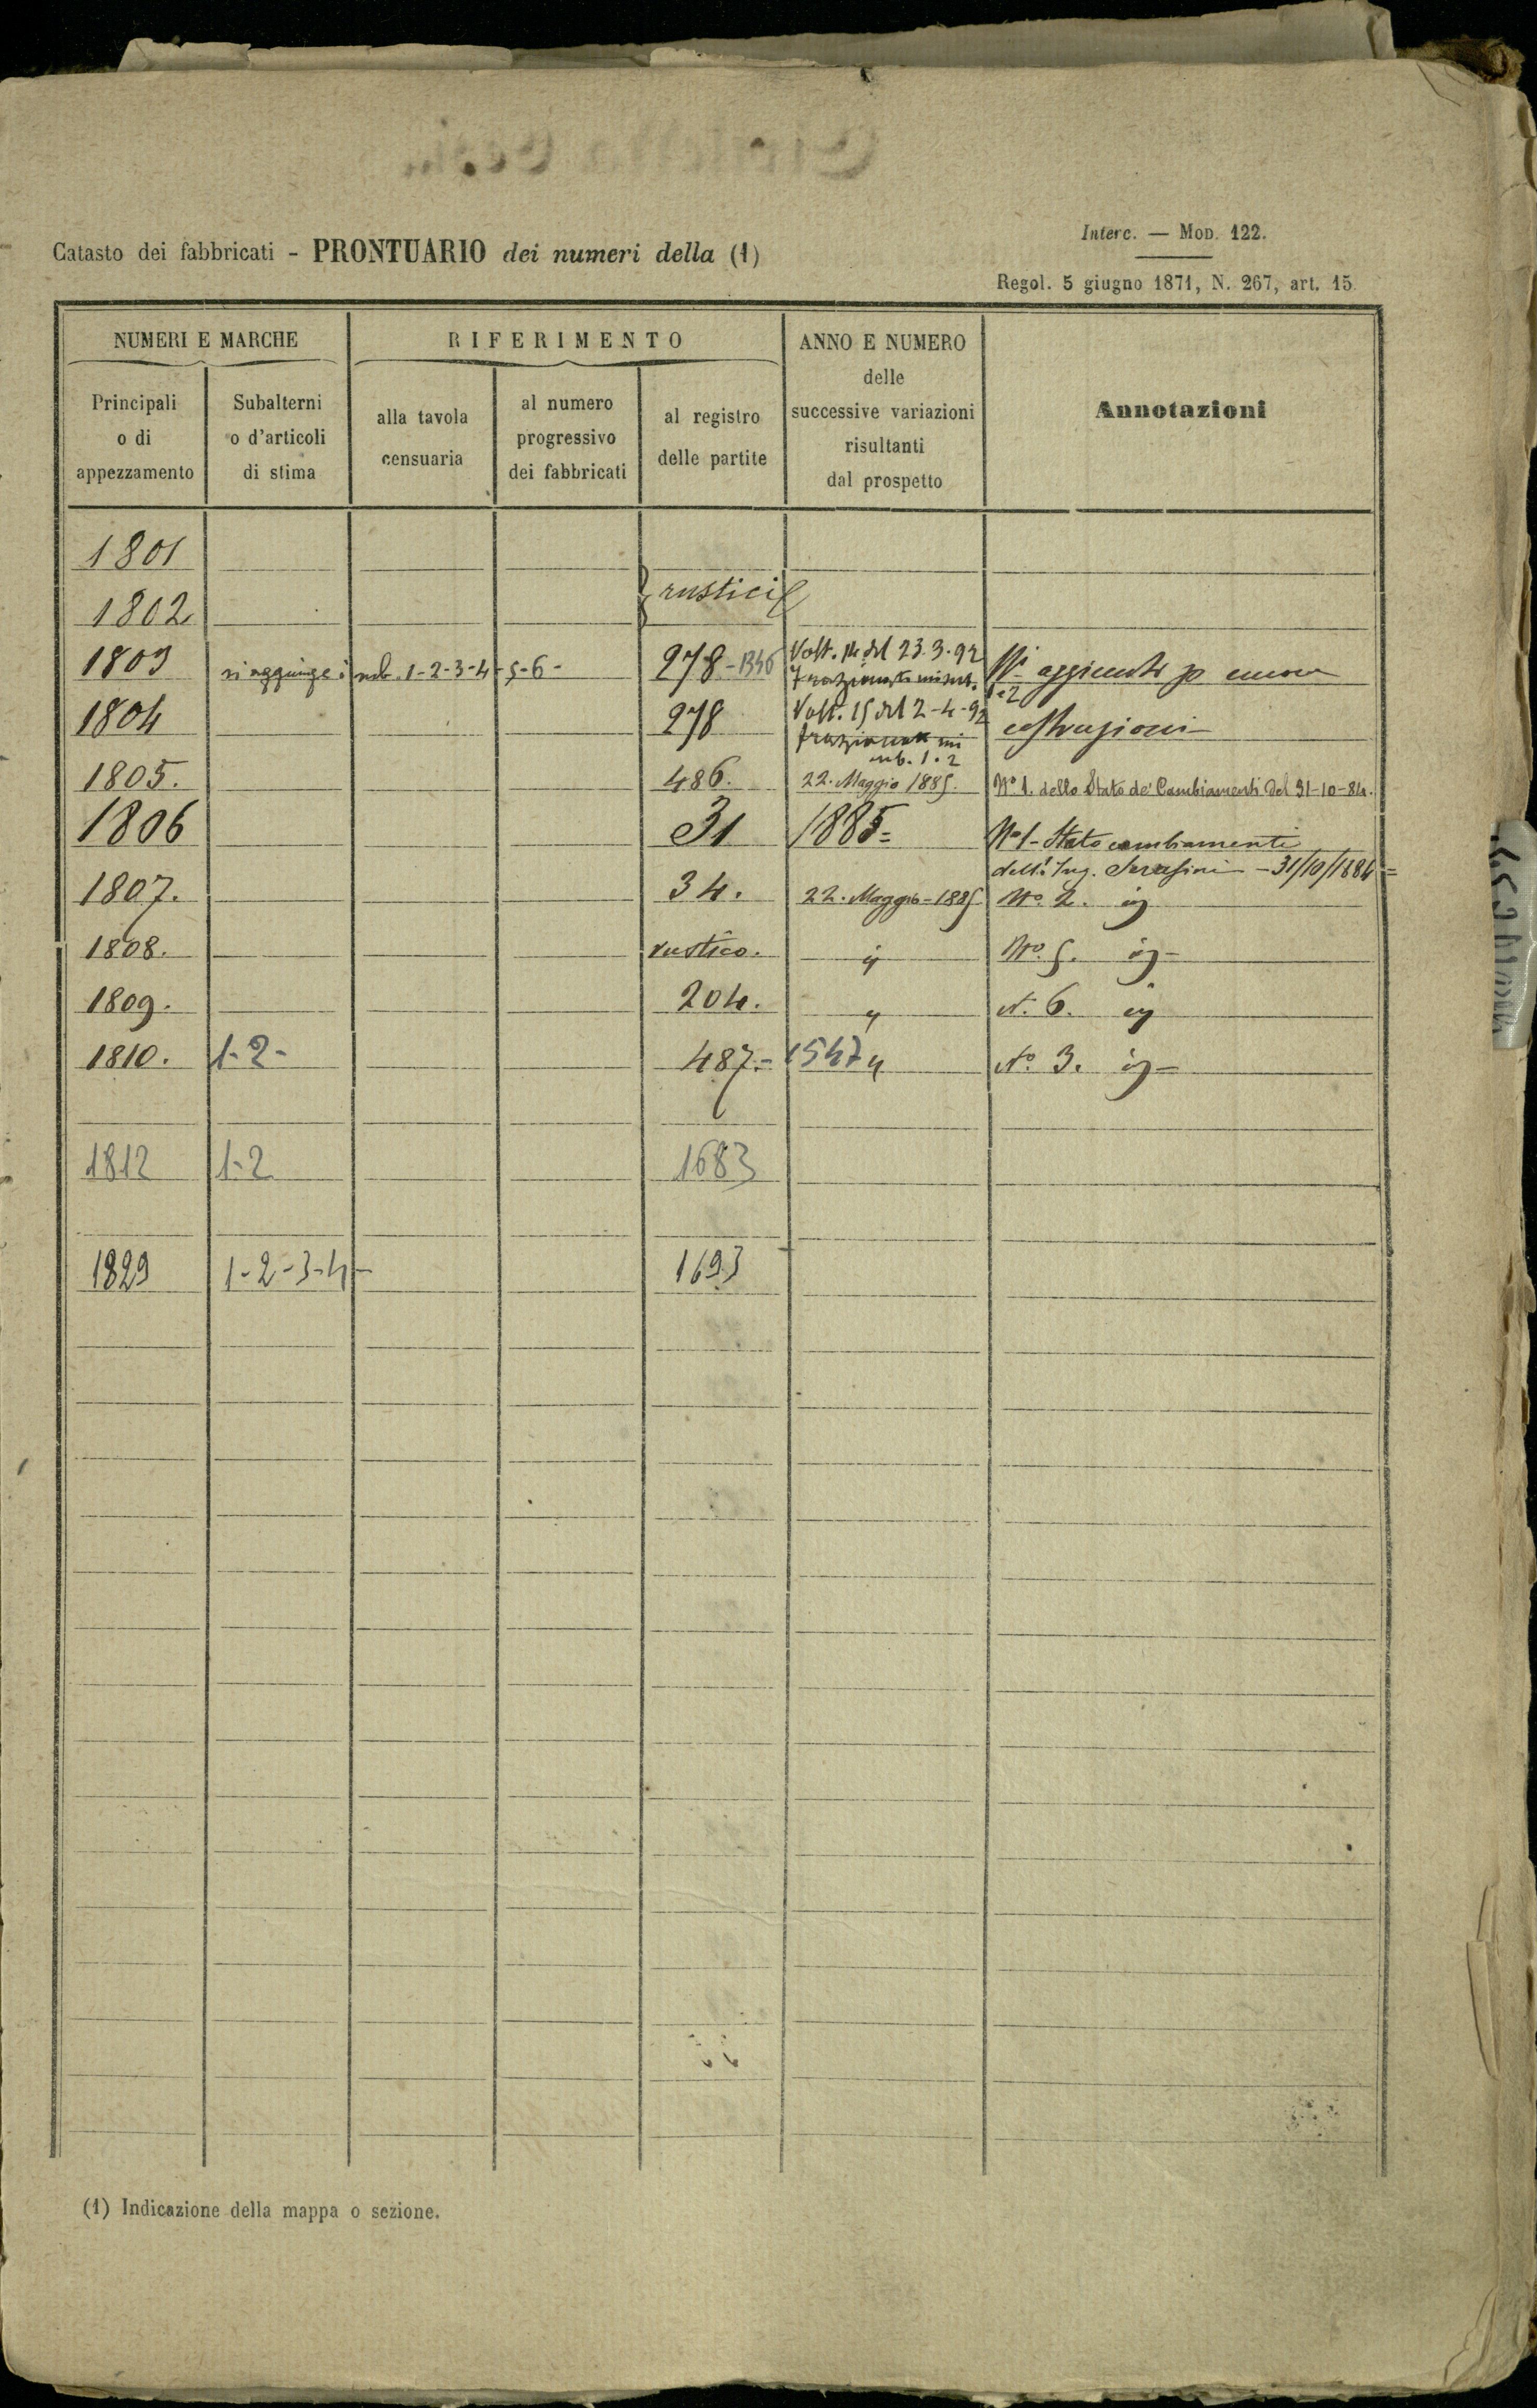 Interc. — MOD. 122.
Catasto dei fabbricati - PRONTUARIO dei numeri della (1)
Regol. 5 giugno 1871, N. 267, art. 15.
NUMERI E MARCHE
RIFERIMENTO
ANNO E NUMERO
delle
successive variazioni
risultanti
dal prospetto
Annotazioni
Principali
o di
appezzamento
Subalterni
o d'articoli
di stima
alla tavola
censuaria
al numero
progressivo
dei fabbricati
al registro
delle partite
1801
1802 rustici
1803 si aggiunge i sub. 1-2-3-4-5-6- 278-1346 Volt. 14 del 23.3.92
1-2
1804 278 Volt. 15 del 2-4-92 costruzioni
sub. 1.2
1805. 486. 22. Maggio 1885. No 1. dello Stato de' Cambiamenti del 31-10-84.
1806 31 1885= No 1- Stato cambiamenti
dell' Ing. Serafini - 31/10/1884=
1807. 34. 22. Maggio-1885 No. 2. id
1808. rustico. " No. 5. id-
1809. 204. " N. 6. id
1810. 1-2- 487.-1547 " No. 3. id-
1812 1-2 1683
1829 1-2-3-4- 1693
(1) Indicazione della mappa o sezione.